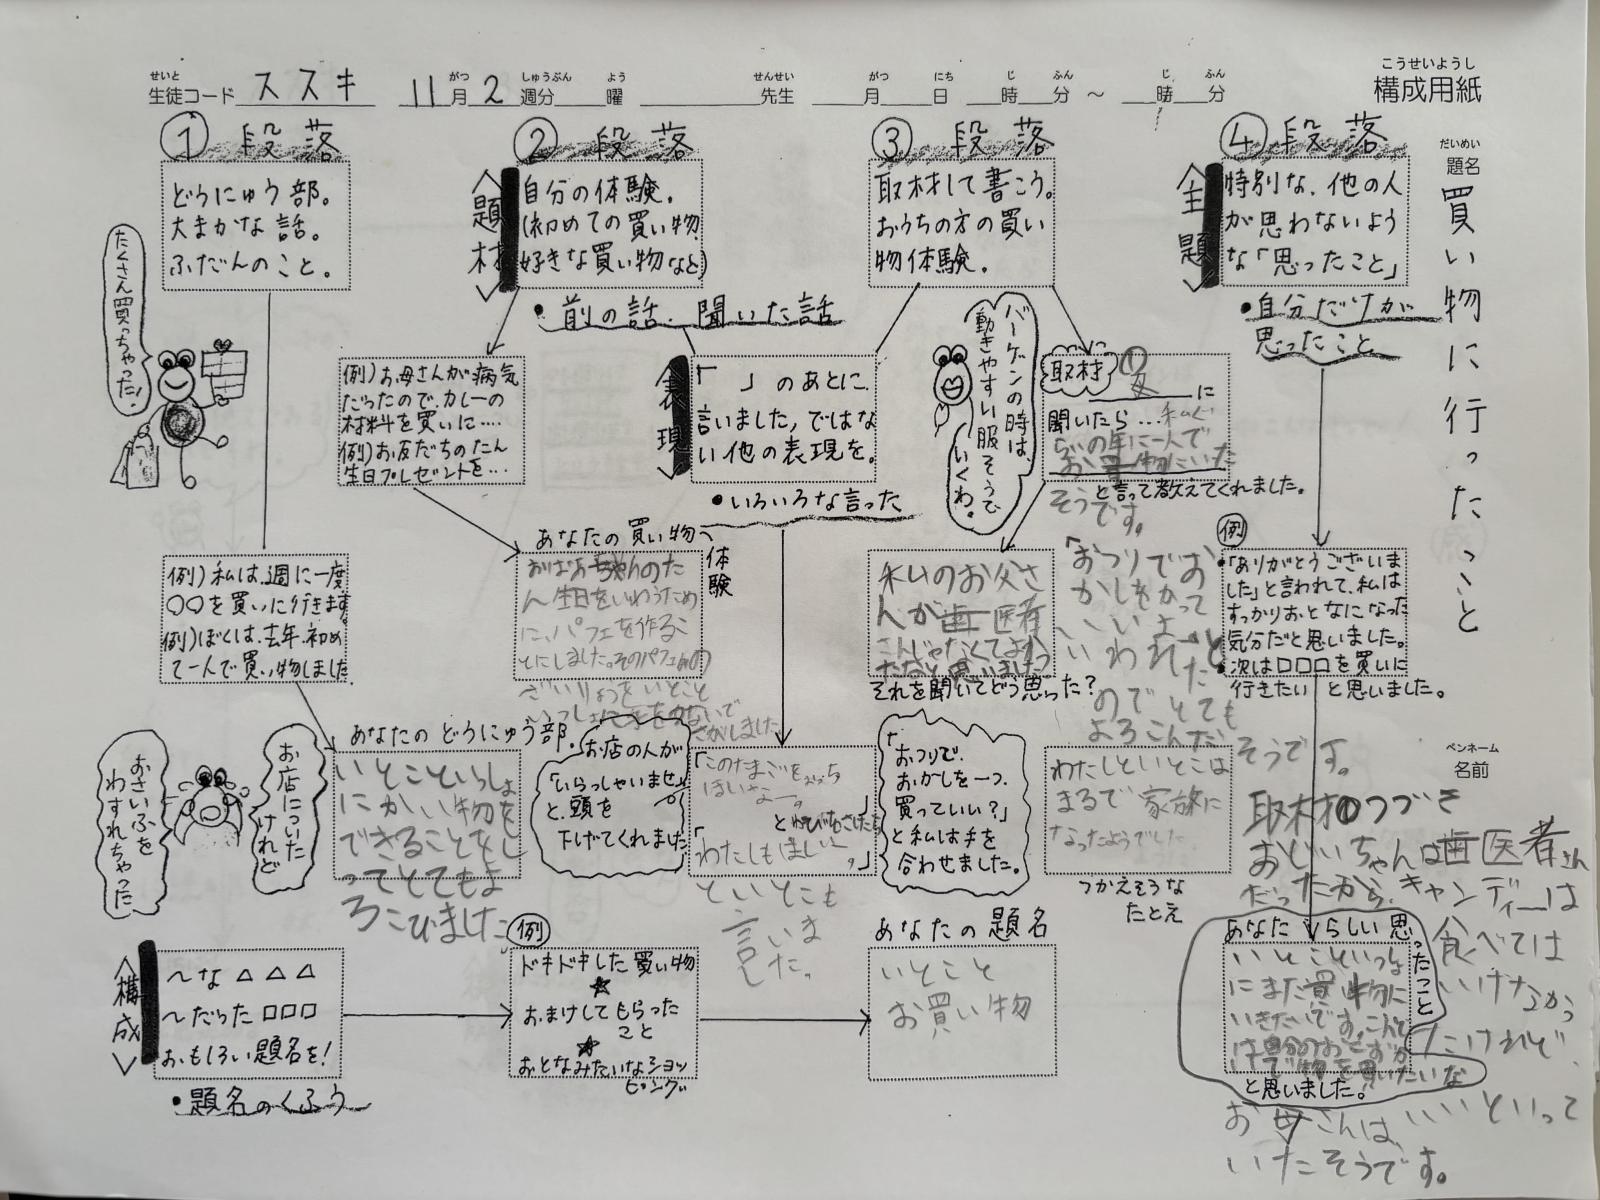 こうせいようし
構成用紙
せいと がつ しゅうぶん よう せんせい がつ にち じ ふん じ ふん
生徒コード ススキ 11月2週分 曜 先生 月 日 時 分 〜 時 分
だいめい
題名
買い物に行ったこと
ペンネーム
名前
① 段落
どうにゅう部。
大まかな話。
ふだんのこと。
たくさん買っちゃった!
例)私は、週に一度
○○を買いに行きます。
例)ぼくは、去年、初め
て一人で買い物しました
あなたの どうにゅう部
いとこといっしょ
にかいい物を
できることをし
ってとてもよ
ろこびました。
お店についた
けれど
おさいふを
わすれちゃった
② 段落
<題材>
自分の体験。
(初めての買い物、
好きな買い物など)
・前の話、聞いた話
例)お母さんが病気
だったので、カレーの
材料を買いに….
例)お友だちのたん
生日プレゼントを…
あなたの買い物体験
おばあちゃんのた
ん生日をいわうため
に、パフェを作るこ
とにしました。そのパフェの
ざいりょうをいとこと
いっしょに手をつないで
さがしました。
<表現>
「 」のあとに、
言いました,ではな
い他の表現を。
・いろいろな言った
お店の人が
「いらっしゃいませ」
と、頭を
下げてくれました
「このたまごを
ほしいなー。」
「わたしもほしいー。」
といとこも
言いま
した。
「おつりで、
おかしを一つ、
買っていい?」
と私は手を
合わせました。
③ 段落
取材して書こう。
おうちの方の買い
物体験。
バーゲンの時は、
動きやすい服そうで
いくわ。
取材
①
に
聞いたら…私ぐ
らいの年に一人で
お買い物にいった
そうです。
と言って教えてくれました。
「おつりでお
かしをかって
いいよー」と
いわれた
のでとても
よろこんだ
そうです。
私のお父さ
んが歯医者
さんじゃなくてよか
ったなと思いました
それを聞いてどう思った?
わたしといとこは
まるで家族に
なったようでした
つかえそうな
たとえ
④ 段落
<主題>
特別な、他の人
が思わないよう
な「思ったこと」
・自分だけが
思ったこと
例
・「ありがとうございま
した」と言われて、私は
すっかりおとなになった
気分だと思いました。
・次は□□□を買いに
行きたい と思いました。
取材①つづき
おじいちゃんは歯医者さん
だったから、キャンディーは
食べては
いけなかっ
たけれど、
お母さんは、いいといって
いたそうです。
あなたらしい思ったこと
いとこといっしょ
にまた買い物に
いきたいです。こんど
は自分のおこずか
いで物を買いたいな
と思いました。
<構成>
〜な △△△
〜だった □□□
おもしろい題名を!
・題名のくふう
例
ドキドキした買い物
☆
おまけしてもらった
こと
☆
おとなみたいなショッ
ピング
あなたの題名
いとこと
お買い物